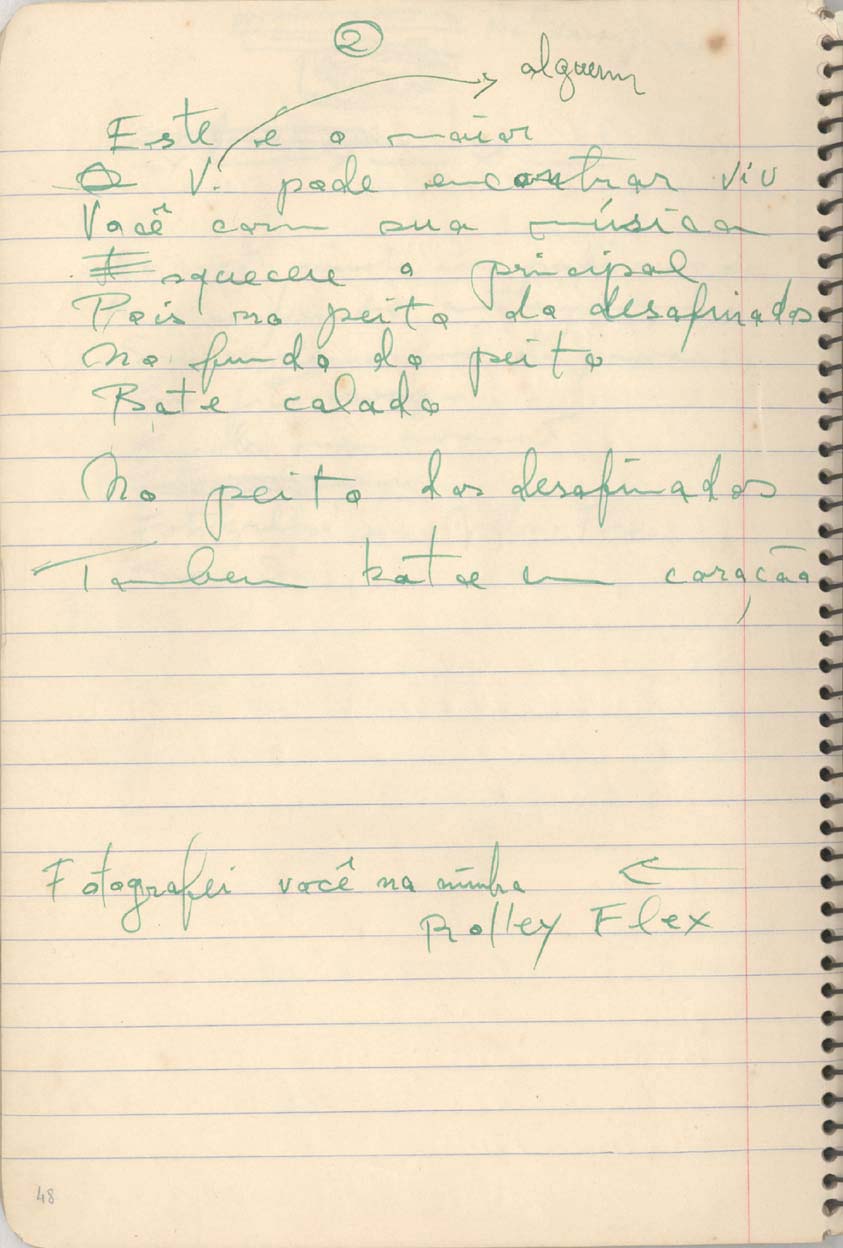 ②
alguem
Este e o maior
O V. pode encontrar viu
Você com sua música
Esqueceu o principal
Pois no peito do desafinados
No fundo do peito
Bate calado
No peito dos desafinados
Tambem bate um coração
Fotografei você na minha
Rolley Flex
48